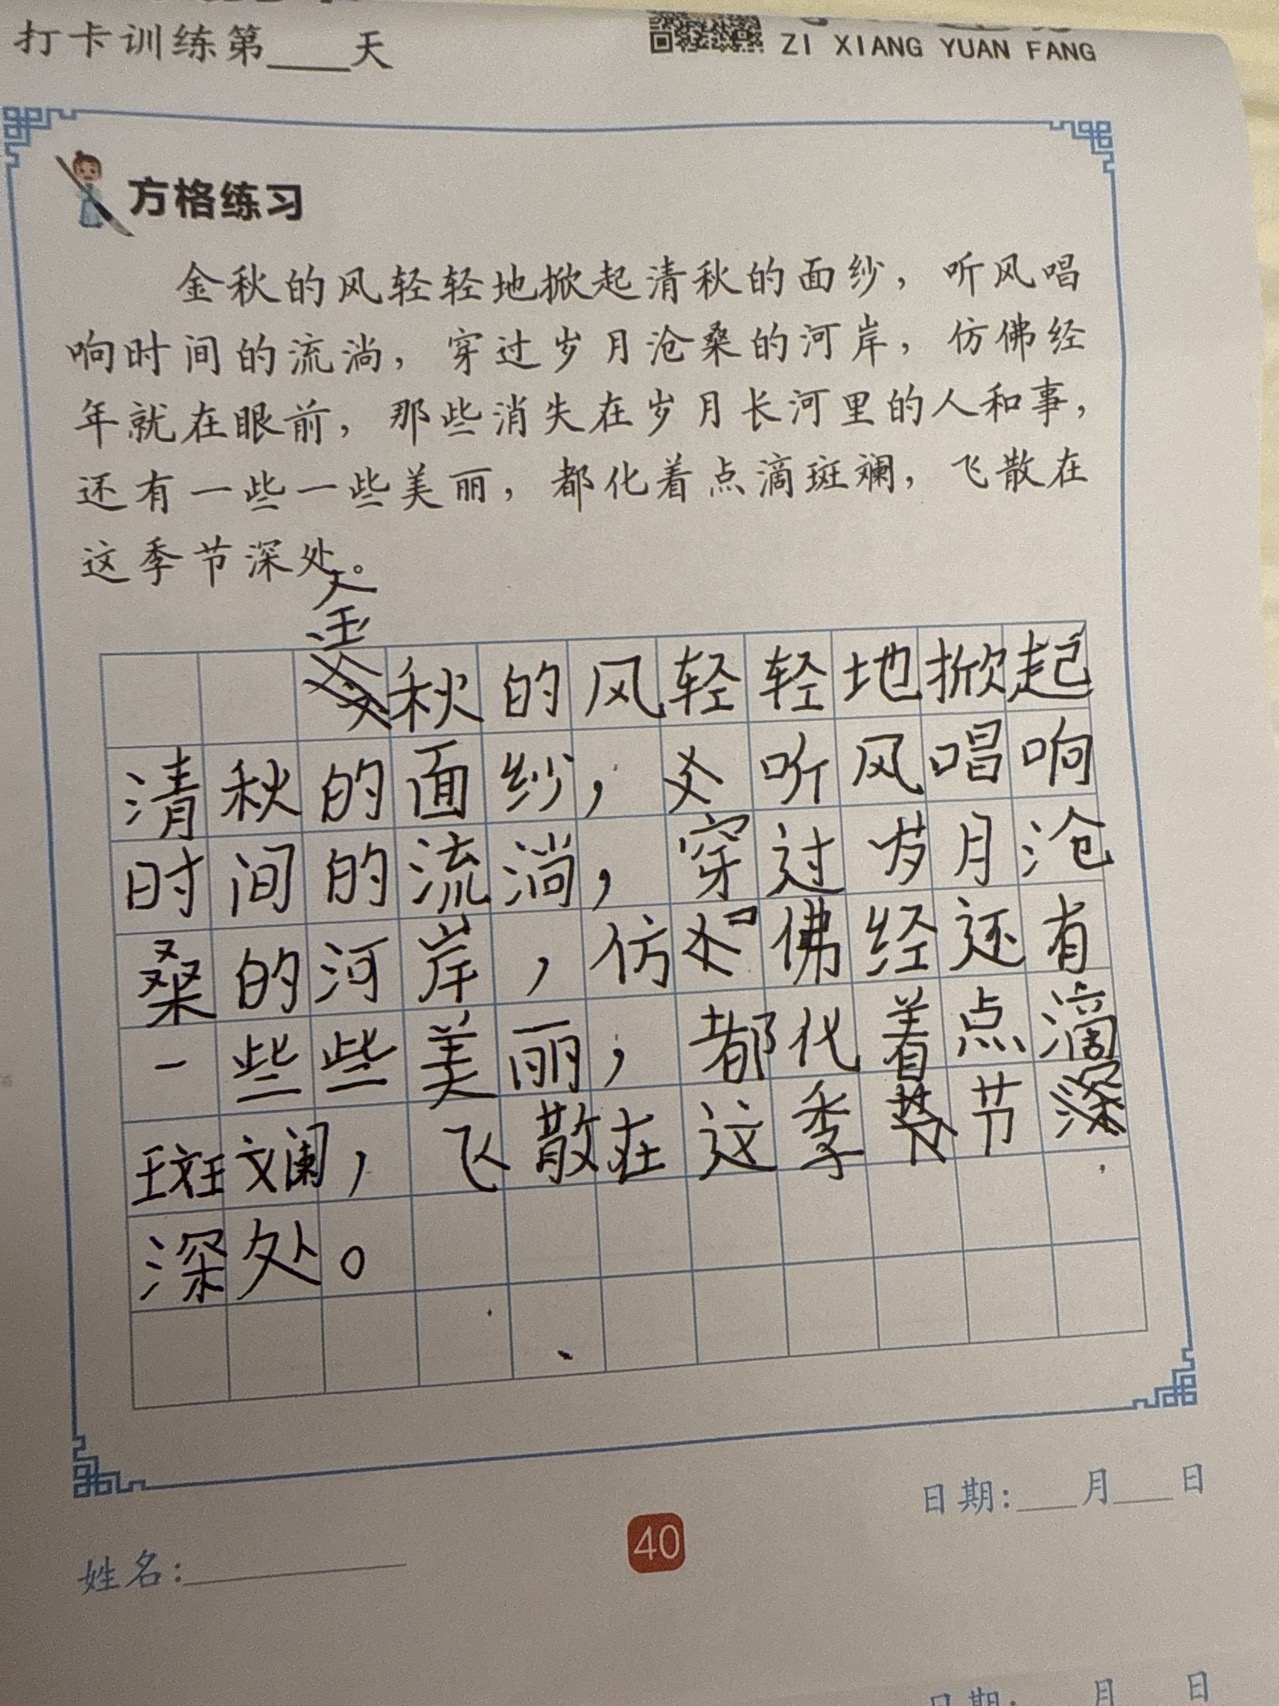 打卡训练第____天
ZI XIANG YUAN FANG
方格练习
金秋的风轻轻地掀起清秋的面纱，听风唱
响时间的流淌，穿过岁月沧桑的河岸，仿佛经
年就在眼前，那些消失在岁月长河里的人和事，
还有一些一些美丽，都化着点滴斑斓，飞散在
这季节深处。
金秋的风轻轻地掀起
清秋的面纱，听风唱响
时间的流淌，穿过岁月沧
桑的河岸，仿佛经还有
一些些美丽，都化着点滴
斑斓，飞散在这季节
深处。
日期:___月___日
40
姓名:__________
日期:___月___日